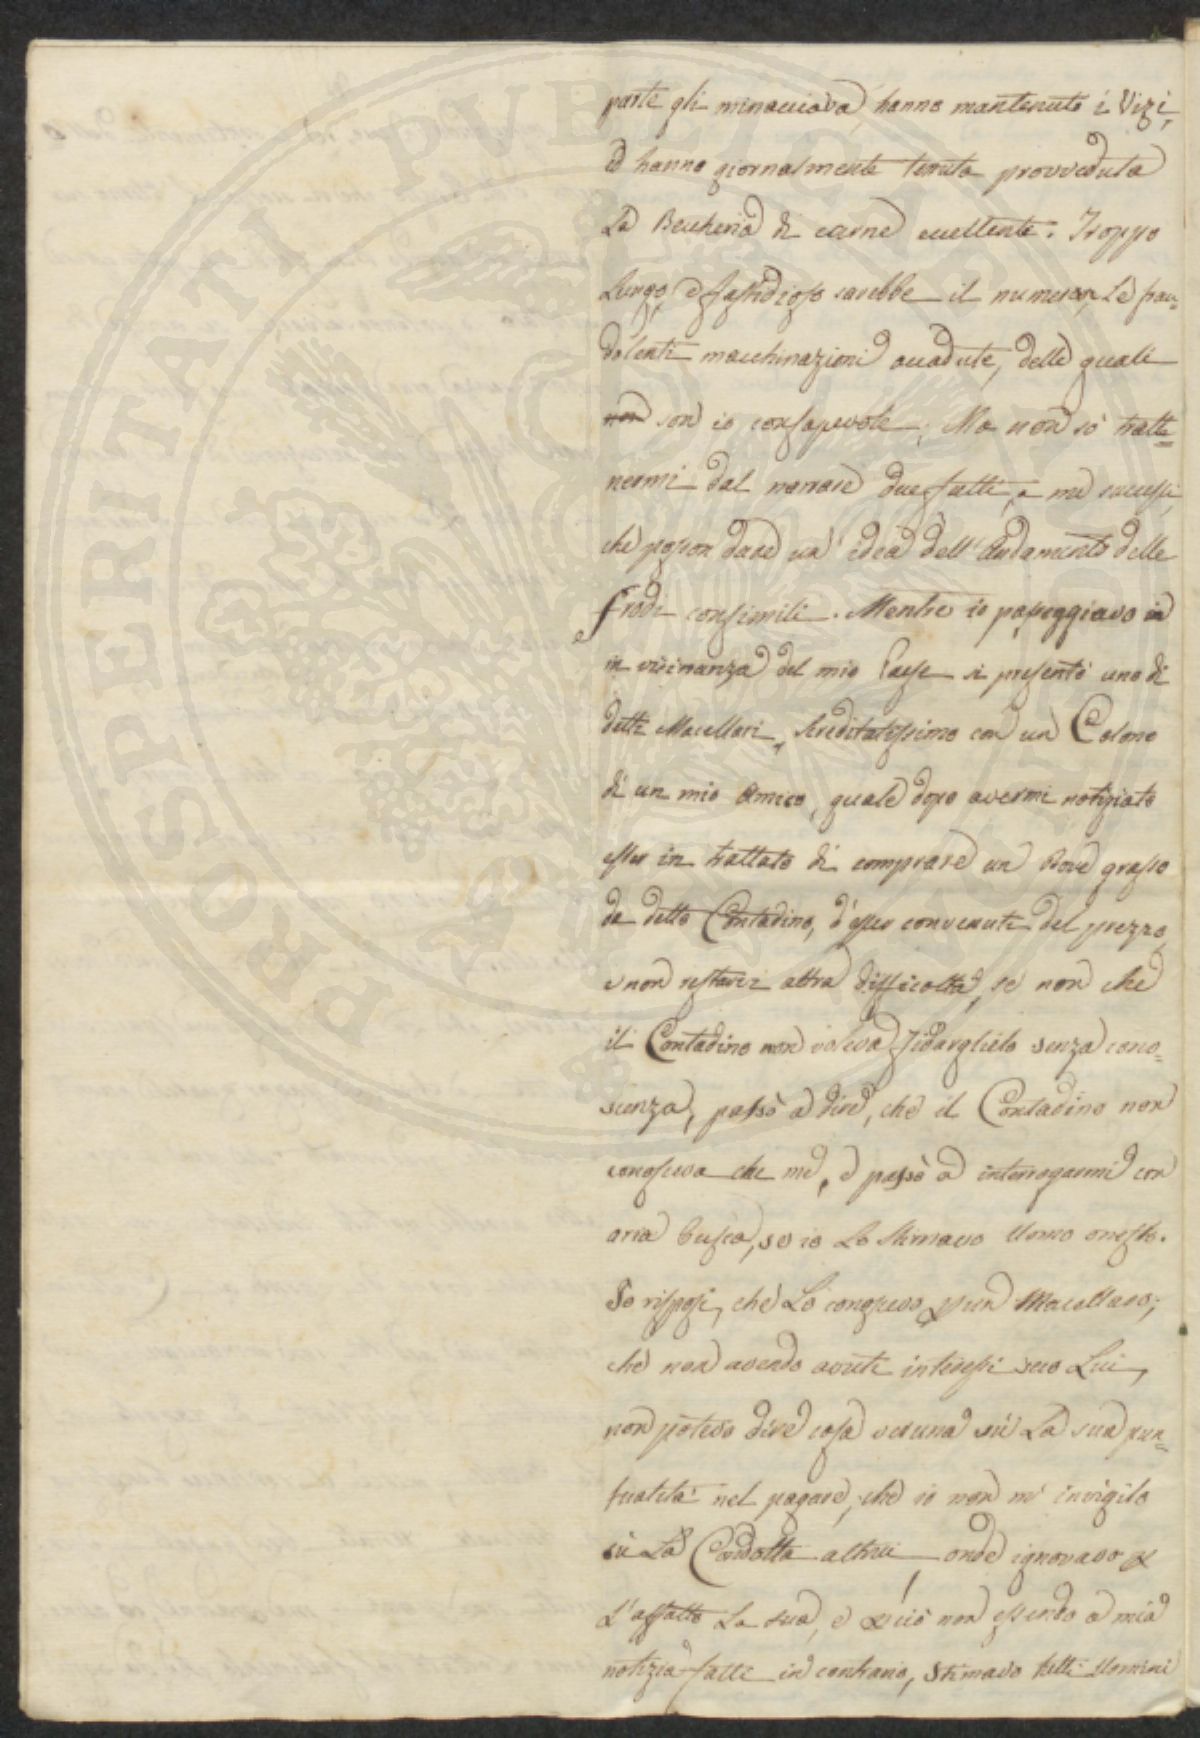 parte gli minacciava, hanno mantenuto i Vizi,
ed hanno giornalmente tenuta provveduta
La Beccheria di carne eccellente. Troppo
Lungo, e fastidioso sarebbe il numerar Le frau-
dolenti macchinazioni accadute, delle quali
non son io consapevole; Ma non so tratte=
nermi dal narrare due fatti, a me successi,
che posson dare un' idea dell' Andamento delle
frodi consimili. Mentre io passeggiavo in
in vicinanza del mio Paese si presentò uno di
detti Macellari, screditatissimo con un Colono
di un mio Amico, quale dopo avermi notiziato
esser in trattato di comprare un Bove grasso
da detto Contadino, d'esser convenuti del prezzo,
e non restarci altra difficoltà, se non che
il Contadino non voleva fidarglielo senza cono=
scenza, passò a dire, che il Contadino non
conosceva che me, e passò ad interrogarmi con
aria, se io Lo stimavo Uomo onesto.
Io risposi, che Lo conoscevo per un Macellaro;
che non avendo avuti interessi seco Lui,
non potevo dire cosa veruna sù La sua pun=
tualità nel pagare; che io non m' invigilo
sù La Condotta altrui, onde ignoravo
L'affatto La sua, e perciò non essendo a mia
notizia fatti in contrario, stimavo tutti Uomini
PROSPERITATI PVBLICAE